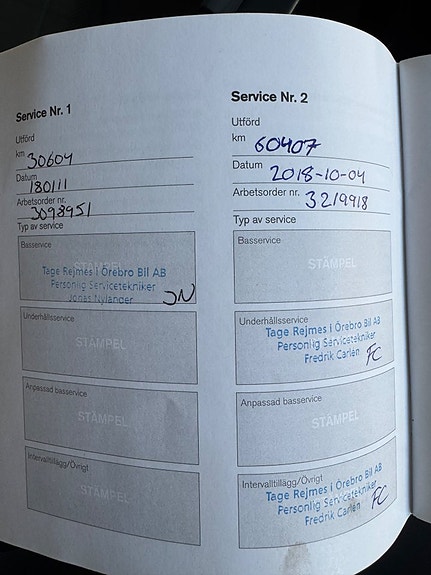 Service Nr. 1
Utförd
km 30604
Datum 180111
Arbetsorder nr. 3098951
Typ av service
Basservice
STÄMPEL
Tage Rejmes i Örebro Bil AB
Personlig Servicetekniker
Jonas Nylander
JN
Underhållsservice
STÄMPEL
Anpassad basservice
STÄMPEL
Intervalltillägg/Övrigt
STÄMPEL
Service Nr. 2
Utförd
km 60407
Datum 2018-10-04
Arbetsorder nr. 3219918
Typ av service
Basservice
STÄMPEL
Underhållsservice
Tage Rejmes i Örebro Bil AB
Personlig Servicetekniker
Fredrik Carlén FC
Anpassad basservice
STÄMPEL
Intervalltillägg/Övrigt
Tage Rejmes i Örebro Bil AB
Personlig Servicetekniker
Fredrik Carlén FC